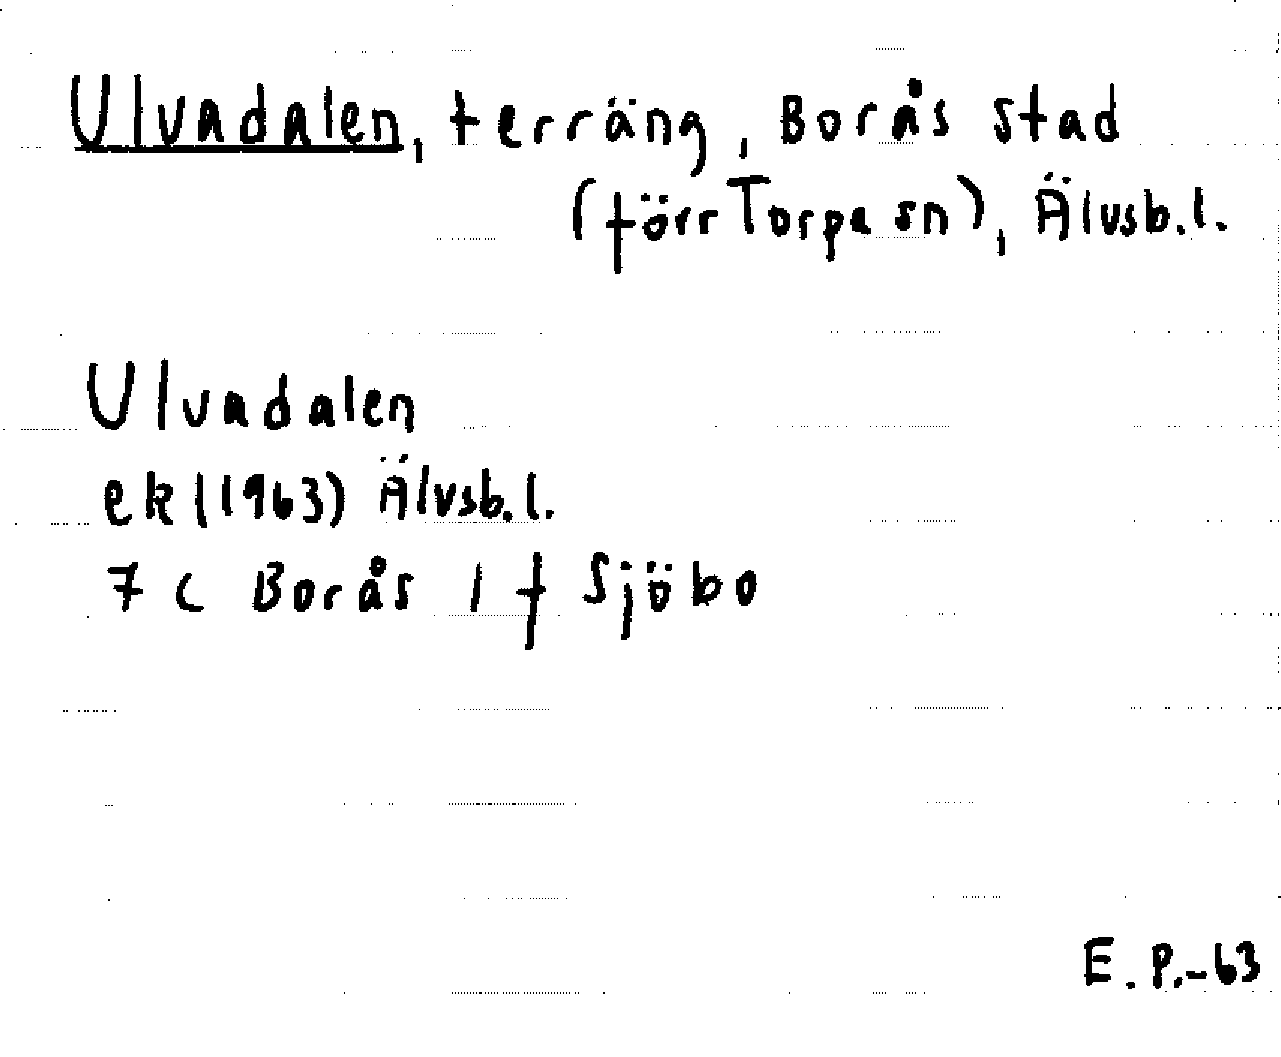 Ulvadalen, terräng, Borås stad
(förr Torpa sn), Älvsb.l.
Ulvadalen
ek (1963) Älvsb.l.
7 C Borås 1 f Sjöbo
E.P.-63